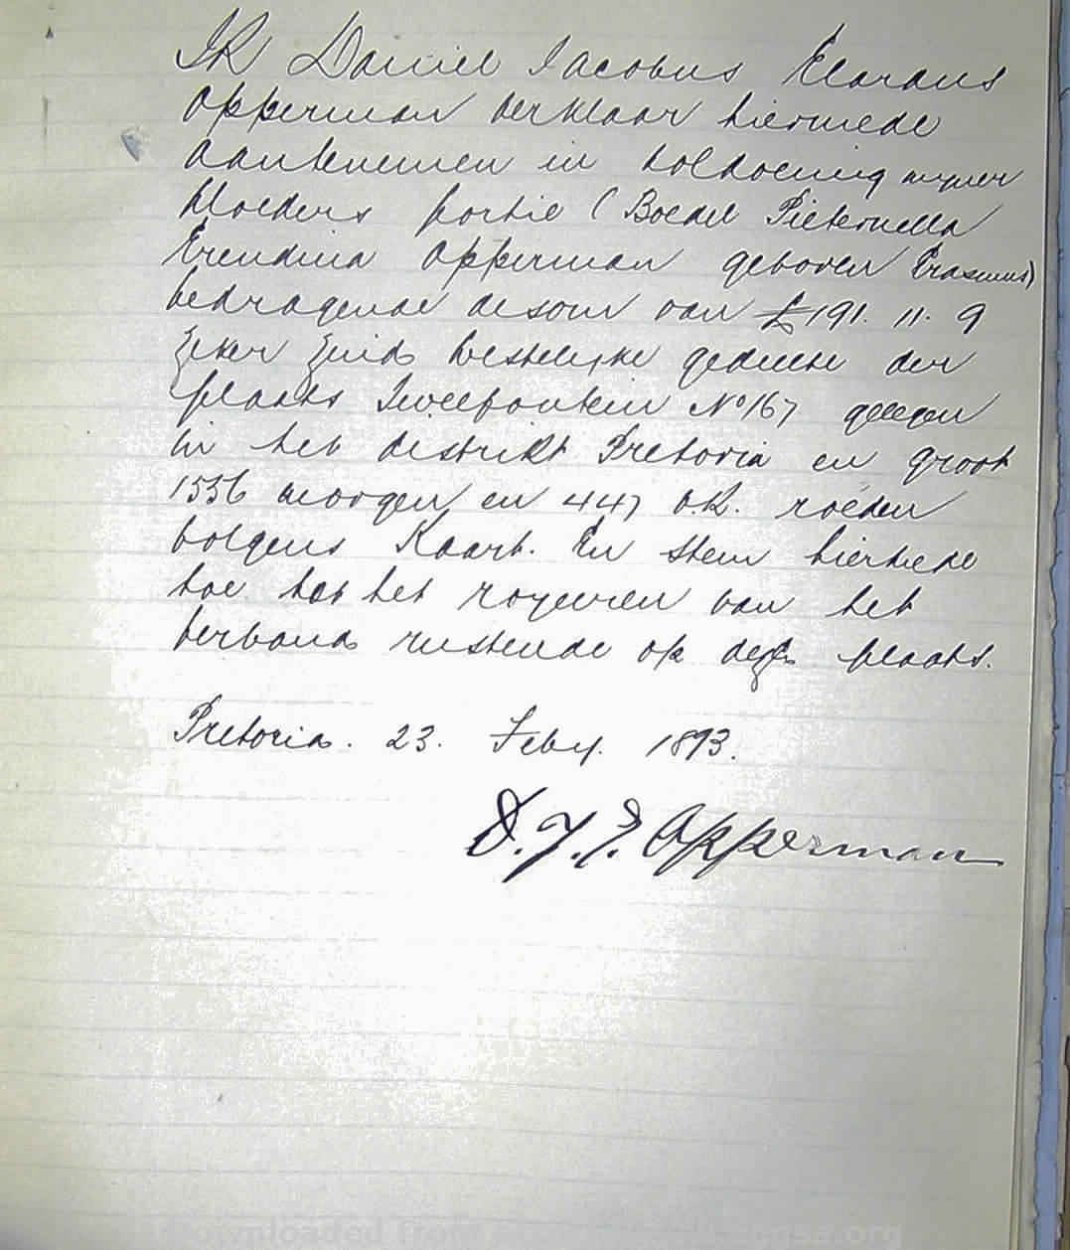 Ik Daniel Jacobus Elardus
Opperman verklaar hiermede
aanteneemen in voldoening mijner
Moeders portie (Boedel Pieternella
Erendina Opperman geboren Erasmus)
bedragende de som van £191. 11. 9
Zeker Zuid Westelijke gedeelte der
plaats Tweefontein No 167 gelegen
in het distrikt Pretoria en groot
1556 morgen en 447 v.R. roeden
volgens Kaart. En stem hiermede
toe tot het royeeren van het
verband rustende op deze plaats.
Pretoria. 23. Feby. 1893.
D. J. E. Opperman
Downloaded from